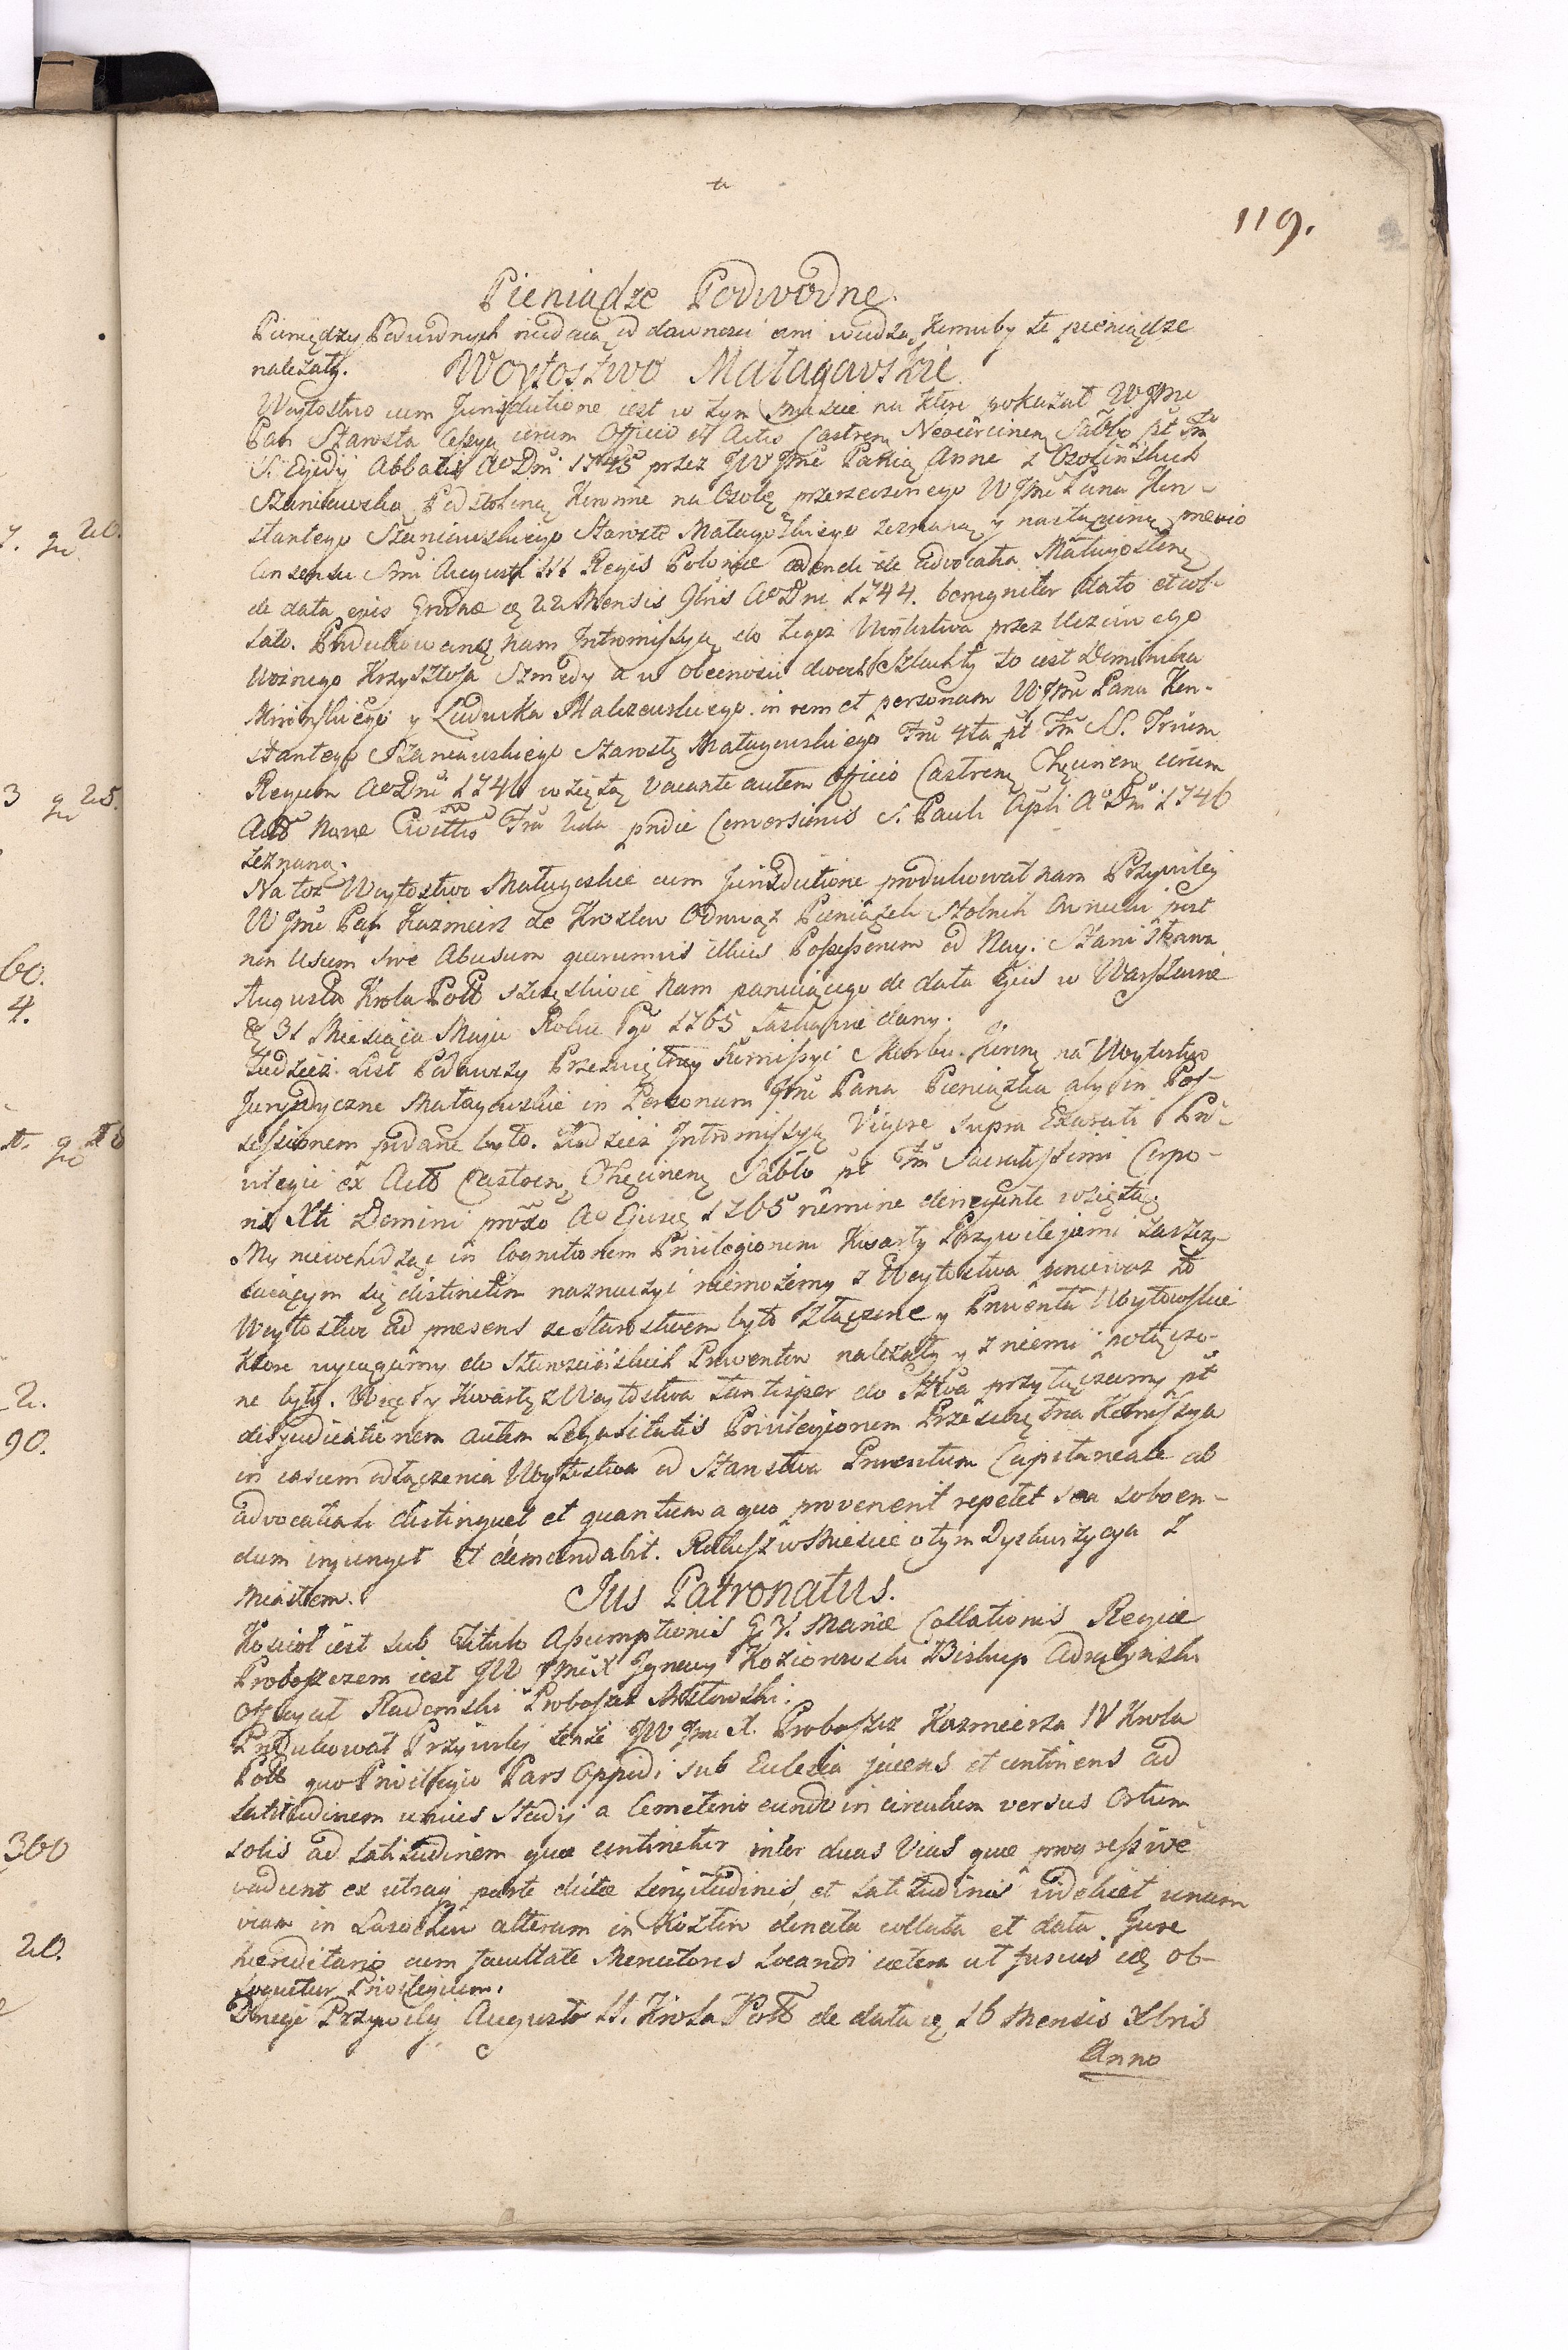 119.
Pieniądze Podwodne.
Pieniędzy Podwodnych niedaią od dawnosci ani wiedzą, komuby te pieniądze
należały.
Woytostwo Małagowskie.
Woytostwo cum Jurisdictione iest w tym Miescie na ktore pokazał WJmc
Pan Starosta Cessyą coram Officio et Actis Castren Neocorcinen Sabbo pt Fm
S. Egidy Abbatis Ao Dni 1745 przez JWJmc Panią Anne z Ossolinskich
Szaniawską Podstoliną Koronne na Osobę przerzeczonego WJmc Pana Kon-
stantego Szaniawskiego Starosto Małagoskiego zeznaną y nastąpioną previo
Consensu Smi Augusti III Regis Poloniæ cedendi de advocatia Małagosten
de data ejus Grodnæ 22 Mensis 9bris Ao Dni 1744. benigniter dato et col-
lato. Produkowaną nam Intromissyą do tegoż Woytostwa przez Uczciwego
Woznego Krzysztofa Szmedy a w obecnosci dwoch Szlachty to iest Dominika
Mironskiego y Ludwika Malczewskiego in rem et personam WJmc Pana Kon-
stantego Szaniawskiego Starostę Małagowskiego Fria 4ta pt Fm SS. Trium
Regum Ao Dni 1746 wziętą vacante autem Officio Castren Chęcinen coram
Actis Novæ Civittis Fria 2da pridie Conversionis S. Pauli Apli Ao Dni 1746
zeznaną.
Na toż Woytostwo Małagoskie cum Jurisdictione produkował nam Przywiley
WJmc Pan Kazmierz de Kroslow Odrowąż Pieniążek Stolnik Owrucki post
non Usum sive Abusum quorumvis illius Possessorum od Nay: Stanisława
Augusta Krola Poll szczęsliwie nam panuiącego de data ejus w Warszawie
31 Miesiąca Maja Roku Pgo 1765 łaskawie dany.
Tudzież List Podawczy Przeswiętney Komissyi Skarbu Koronn na Woytostwo
Jurydyczne Małagowskie in Personam Jmc Pana Pieniążka aby in Pos-
sessionem podane było. Tudzież Intromissyą Vigore supra Exarati Pri-
vilegii ex Actis Castren Chęcinen Sabbo pt Fm Sacratissimi Corpo-
ris Xti Domini proxo Ao Ejusq 1765 nemine denegante wziętą.
My niewchodząc in Cognitionem Privilegiorum Kwarty Przywilejami zaszczy-
caiącym się distinctim naznaczyć niemożemy z Woytostwa ponieważ to
Woytostwo ad presens ze Starostwem było złączone y Prowenta Woytowskie
ktore wyciągamy do Starościńskich Prowentow należały y z niemi połączo-
ne były. Więc y Kwartę z Woytostwa tantisper do Sttwa przyłączamy pt
disjudicationem autem Legalitatis Privilegiorum Przeswiętna Komissya
in casum odłączenia Woytostwa od Starostwa Proventum Capitaneale ab
advocatiali distinguet et quantum a quo provenerit repetet seu solven-
dum injunget et demandabit. Ratusz w Miescie o tym Dyskursycya z
Miastem.
Jus Patronatus.
Kosciol iest sub Titulo Assumptionis B. V. Mariæ Collationis Regiæ
Proboszczem iest JW JmcX Jgnacy Kozierowski Biskup Adrateński
Officyał Radomski Proboszcz Mstowski.
Produkował Przywiley tenże JW Jmc X. Proboszcz Kazmierza IV Krola
Poll quo Privilegio Pars Oppidi sub Eclesia jacens et continens ad
latitudinem unius Stadij a Cemeterio eundo in circulum versus Ortum
solis ad latitudinem quæ continetur inter duas Vias quæ progressive
vadunt ex utraq parte dictæ Longitudinis et latitudinis videlicet unam
viam in Lasochow alteram in Kozlow donata collata et data Jure
hæreditario cum facultate Mercatores Locandi cætera ut fusius idq ob-
loquetur Privilegium.
Drugi Przywiley Augusta II. Krola Poll de data 16 Mensis Xbris
Anno